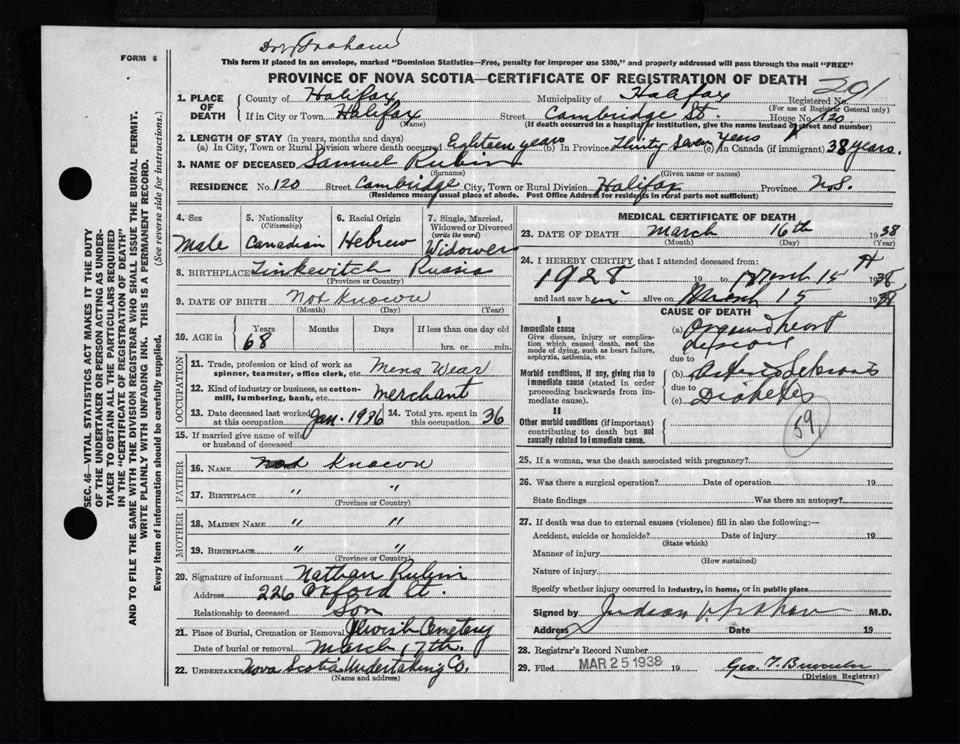 Dr. Graham
FORM 6
This form if placed in an envelope, marked "Dominion Statistics—Free, penalty for improper use $300," and properly addressed will pass through the mail "FREE"
PROVINCE OF NOVA SCOTIA—CERTIFICATE OF REGISTRATION OF DEATH
291
1. PLACE OF DEATH
County of Halifax Municipality of Halifax Registered No.
(For use of Registrar General only)
If in City or Town Halifax Street Cambridge St. House No. 120
(Name) (If death occurred in a hospital or institution, give the name instead of street and number)
2. LENGTH OF STAY (in years, months and days)
(a) In City, Town or Rural Division where death occurred Eighteen years (b) In Province Thirty Seven years (c) In Canada (if immigrant) 38 years.
3. NAME OF DECEASED Samuel Rubin
(Surname) (Given name or names)
RESIDENCE No. 120 Street Cambridge City, Town or Rural Division Halifax Province N.S.
(Residence means usual place of abode. Post Office Address for residents in rural parts not sufficient)
4. Sex
Male
5. Nationality
(Citizenship)
Canadian
6. Racial Origin
Hebrew
7. Single, Married, Widowed or Divorced
(write the word)
Widower
8. BIRTHPLACE Russia
(Province or Country)
9. DATE OF BIRTH Not Known
(Month) (Day) (Year)
10. AGE in Years Months Days If less than one day old
68 hrs. or min.
OCCUPATION
11. Trade, profession or kind of work as spinner, teamster, office clerk, etc. Mens Wear
12. Kind of industry or business, as cotton-mill, lumbering, bank, etc. merchant
13. Date deceased last worked at this occupation Jan. 1936 14. Total yrs. spent in this occupation 36
15. If married give name of wife or husband of deceased
FATHER
16. NAME Not Known
17. BIRTHPLACE " "
(Province or Country)
MOTHER
18. MAIDEN NAME " "
19. BIRTHPLACE " "
(Province or Country)
20. Signature of informant Nathan Rubin
Address 226 Oxford St.
Relationship to deceased Son
21. Place of Burial, Cremation or Removal Jewish Cemetery
Date of burial or removal March 17th.
22. UNDERTAKER Nova Scotia Undertaking Co.
(Name and address)
MEDICAL CERTIFICATE OF DEATH
23. DATE OF DEATH March 16th 1938
(Month) (Day) (Year)
24. I HEREBY CERTIFY that I attended deceased from:
1928 19 to March 15 1938
and last saw him alive on March 15 1938
CAUSE OF DEATH
I
Immediate cause
Give disease, injury or complication which caused death, not the mode of dying, such as heart failure, asphyxia, asthenia, etc.
(a) Organic heart
disease
due to
Morbid conditions, if any, giving rise to immediate cause (stated in order proceeding backwards from immediate cause).
(b) Arteriosclerosis
due to
(c) Diabetes
II
Other morbid conditions (if important) contributing to death but not causally related to immediate cause.
59
25. If a woman, was the death associated with pregnancy?
26. Was there a surgical operation? Date of operation 19
State findings Was there an autopsy?
27. If death was due to external causes (violence) fill in also the following:—
Accident, suicide or homicide? Date of injury 19
(State which)
Manner of injury
(How sustained)
Nature of injury
Specify whether injury occurred in industry, in home, or in public place
Signed by M.D.
Address Date 19
28. Registrar's Record Number
29. Filed MAR 25 1938 19
(Division Registrar)
SEC. 46—VITAL STATISTICS ACT MAKES IT THE DUTY
OF THE UNDERTAKER OR PERSON ACTING AS UNDER-
TAKER TO OBTAIN ALL THE PARTICULARS REQUIRED
IN THE "CERTIFICATE OF REGISTRATION OF DEATH"
AND TO FILE THE SAME WITH THE DIVISION REGISTRAR WHO SHALL ISSUE THE BURIAL PERMIT.
WRITE PLAINLY WITH UNFADING INK. THIS IS A PERMANENT RECORD.
Every item of information should be carefully supplied. (See reverse side for instructions.)